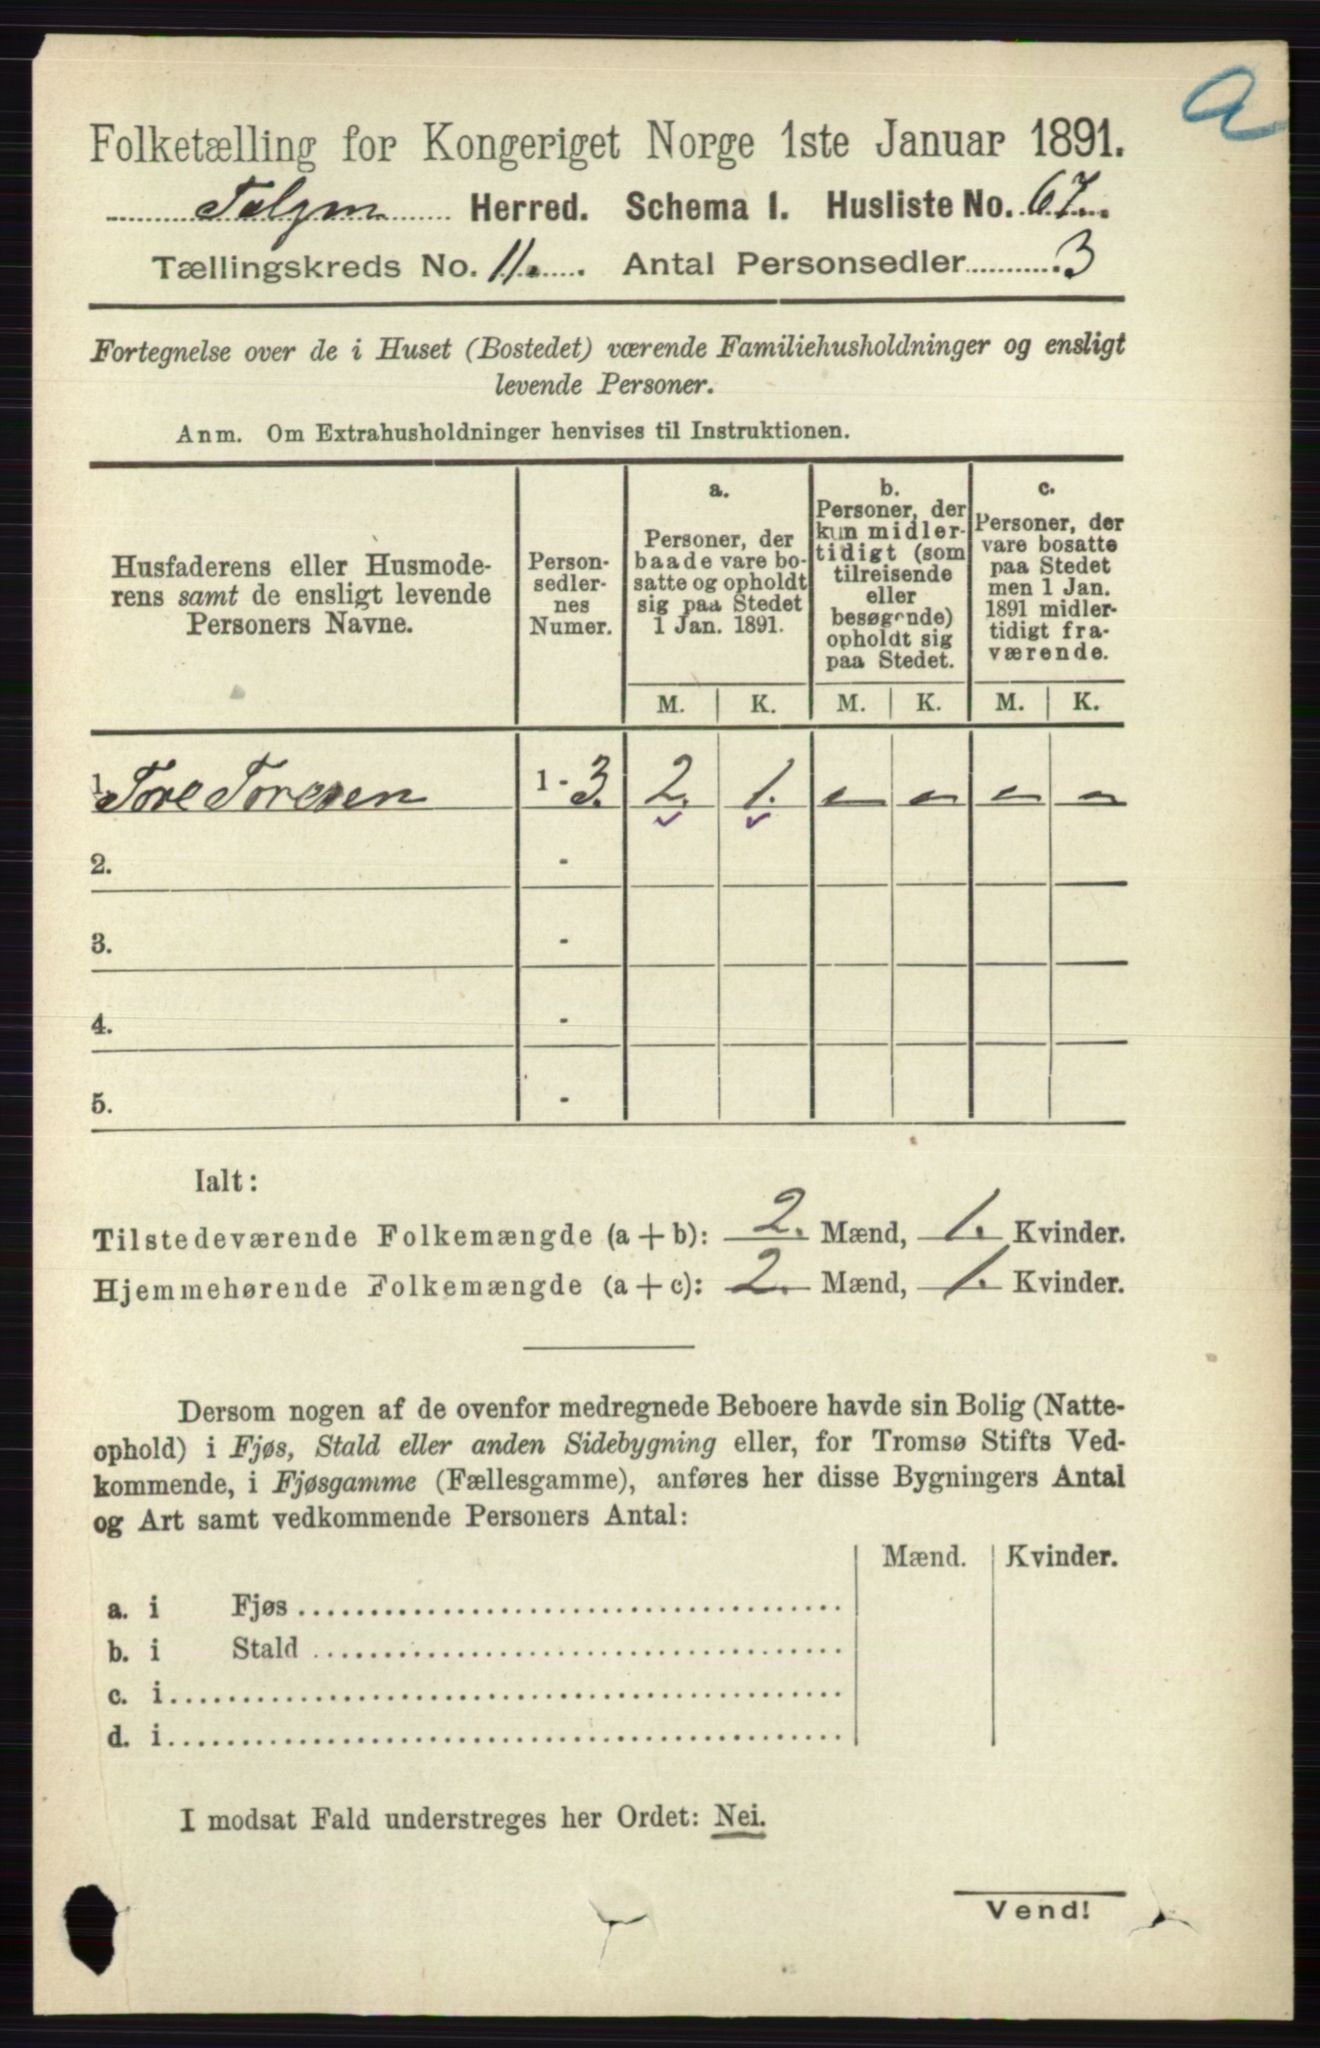 a
Folketælling for Kongeriget Norge 1ste Januar 1891.
Tolgen Herred. Schema I. Husliste No. 67.
Tællingskreds No. 11. Antal Personsedler 3
Fortegnelse over de i Huset (Bostedet) værende Familiehusholdninger og ensligt
levende Personer.
Anm. Om Extrahusholdninger henvises til Instruktionen.
Husfaderens eller Husmode-
rens samt de ensligt levende
Personers Navne.
Person-
sedler-
nes
Numer.
a.
Personer, der
baade vare bo-
satte og opholdt
sig paa Stedet
1 Jan. 1891.
b.
Personer, der
kun midler-
tidigt (som
tilreisende
eller
besøgende)
opholdt sig
paa Stedet.
c.
Personer, der
vare bosatte
paa Stedet
men 1 Jan.
1891 midler-
tidigt fra-
værende.
M. K. M. K. M. K.
1. Tore Toresen 1 - 3. 2. 1. – – – –
2. -
3. -
4. -
5. -
Ialt:
Tilstedeværende Folkemængde (a + b): 2. Mænd, 1. Kvinder.
Hjemmehørende Folkemængde (a + c): 2. Mænd, 1. Kvinder.
Dersom nogen af de ovenfor medregnede Beboere havde sin Bolig (Natte-
ophold) i Fjøs, Stald eller anden Sidebygning eller, for Tromsø Stifts Ved-
kommende, i Fjøsgamme (Fællesgamme), anføres her disse Bygningers Antal
og Art samt vedkommende Personers Antal:
Mænd. Kvinder.
a. i Fjøs
b. i Stald
c. i
d. i
I modsat Fald understreges her Ordet: Nei.
Vend!